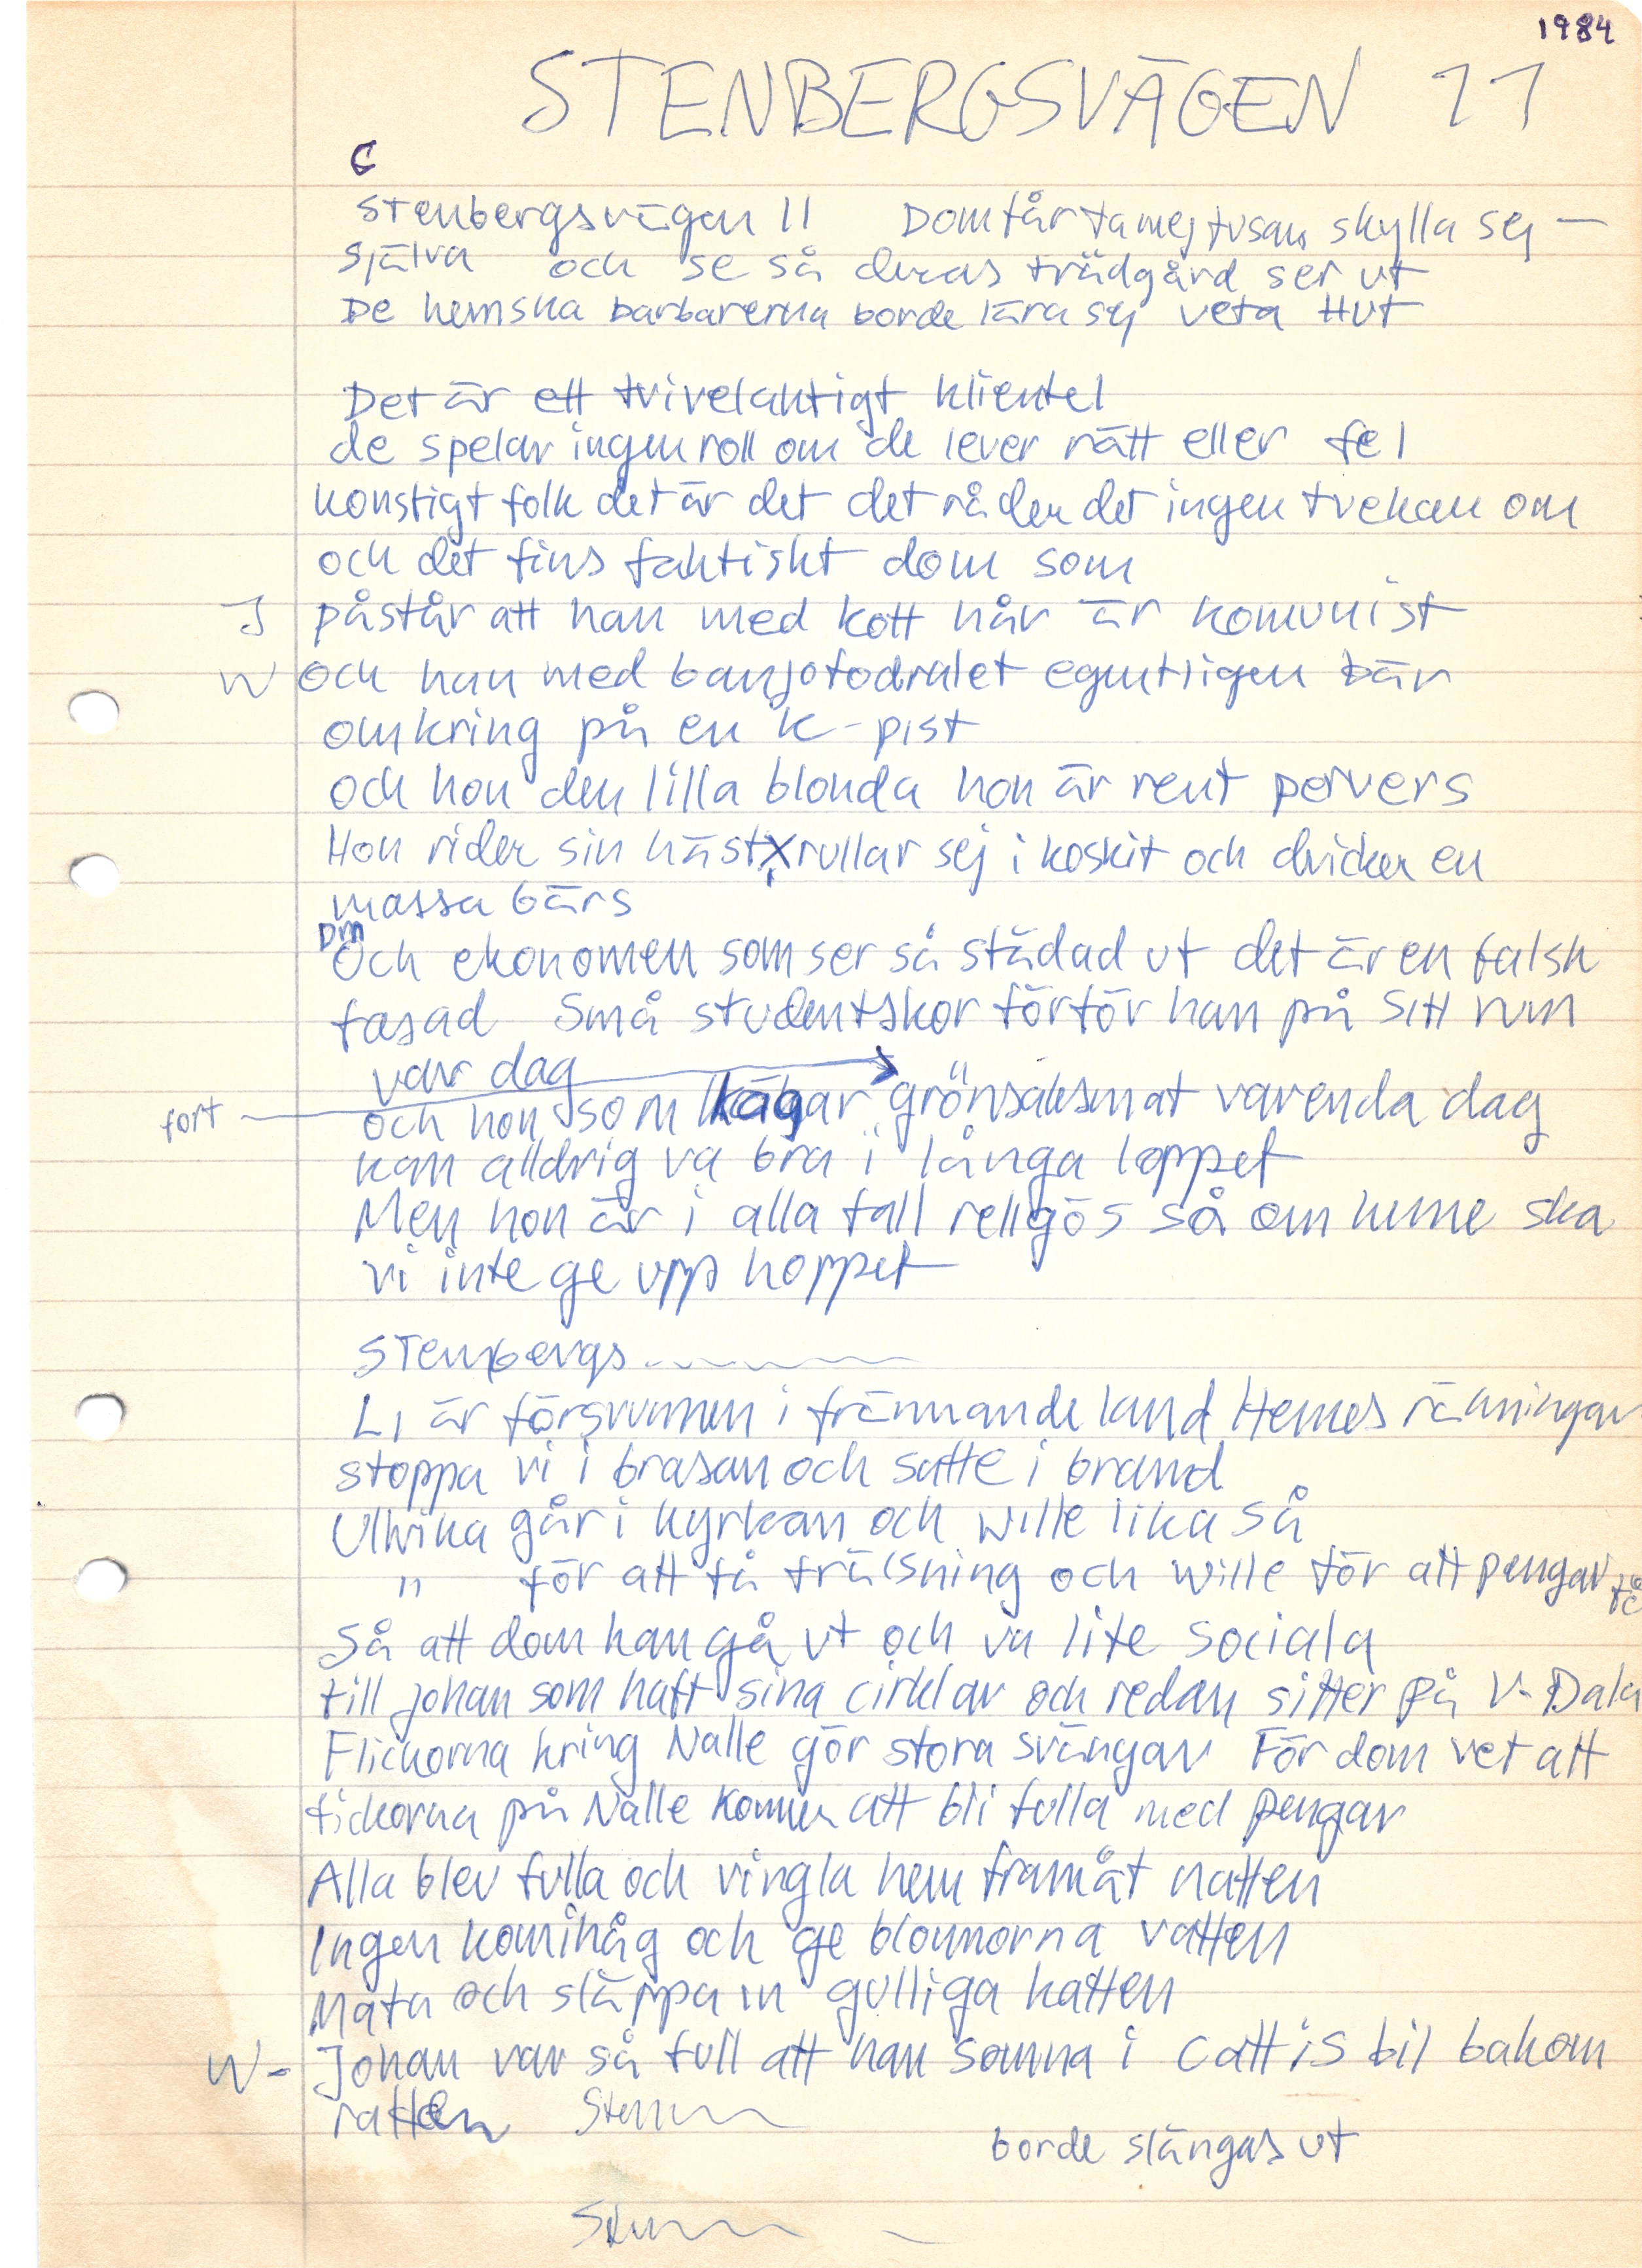 1984
STENBERGSVÄGEN 11
C
Stenbergsvägen 11 Dom får ta mej tusan skylla sej –
själva och se så deras trädgård ser ut
De hemska barbarerna borde lära sej veta HUT
Det är ett tvivelaktigt klientel
de spelar ingen roll om de lever rätt eller fel
konstigt folk det är det det råder det ingen tvekan om
och det fins faktiskt dom som
J påstår att han med kott hår är komunist
W och han med banjofodralet egentligen bär
omkring på en k-pist
och hon den lilla blonda hon är rent pervers
Hon rider sin häst rullar sej i koskit och dricker en
massa bärs
Dm
Och ekonomen som ser så städad ut det är en falsk
fasad Små studentskor förför han på sitt rum
var dag
fort och hon som käkar grönsaksmat varenda dag
kan alldrig va bra i långa loppet
Men hon är i alla fall religös så om henne ska
vi inte ge upp hoppet
Stenbergs
Li är försvunnen i främmande land Hennes räkningar
stoppa vi i brasan och satte i brand
Ulrika går i kyrkan och Wille lika så
" för att få frälsning och Wille för att pengar få
Så att dom kan gå ut och va lite sociala
till Johan som haft sina cirklar och redan sitter på V-Dala
Flickorna kring Nalle gör stora svängar För dom vet att
fickorna på Nalle kommer att bli fulla med pengar
Alla blev fulla och vingla hem framåt natten
Ingen komihåg och ge blommorna vatten
Mata och släppa in gulliga katten
W - Johan var så full att han somna i Cattis bil bakom
ratten Sten
borde slängas ut
Sten